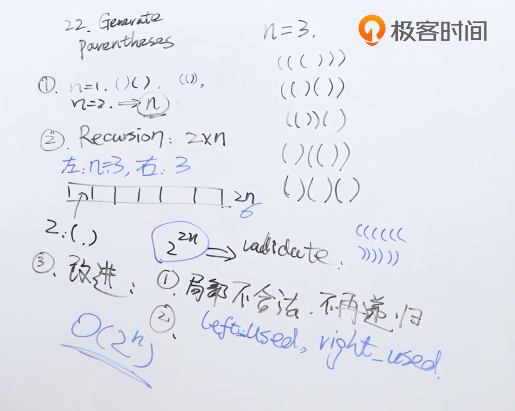 22. Generate
parentheses
极客时间
n=3.
((()))
(()())
(())()
()(())
()()()
①. n=1. ()(). (()),
n=2. ⇒ n
② Recursion: 2×n
左:n=3, 右: 3
2n
6
2:(.)
2^2n ⇒ validate:
((((((
))))))
③. 改进: ①局部不合法.不再递归
②. left_used, right_used.
O(2^n)